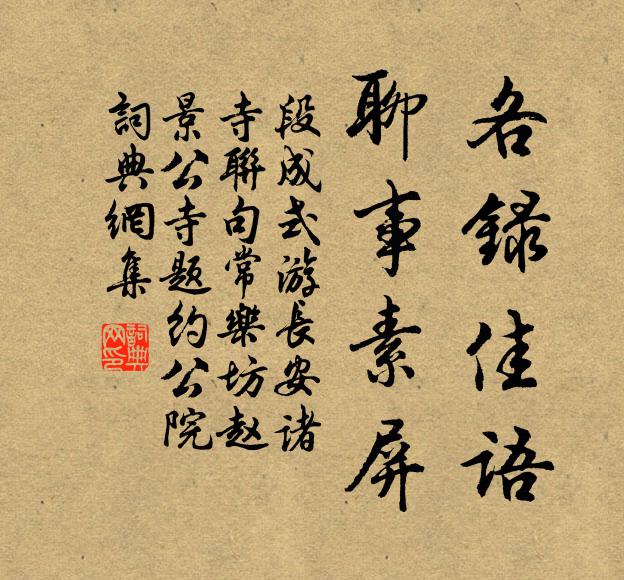 各録佳語
聊事素屏
段成式游長安諸
寺聯句常樂坊赵
景公寺題約公院
詞典網集
詞典网印